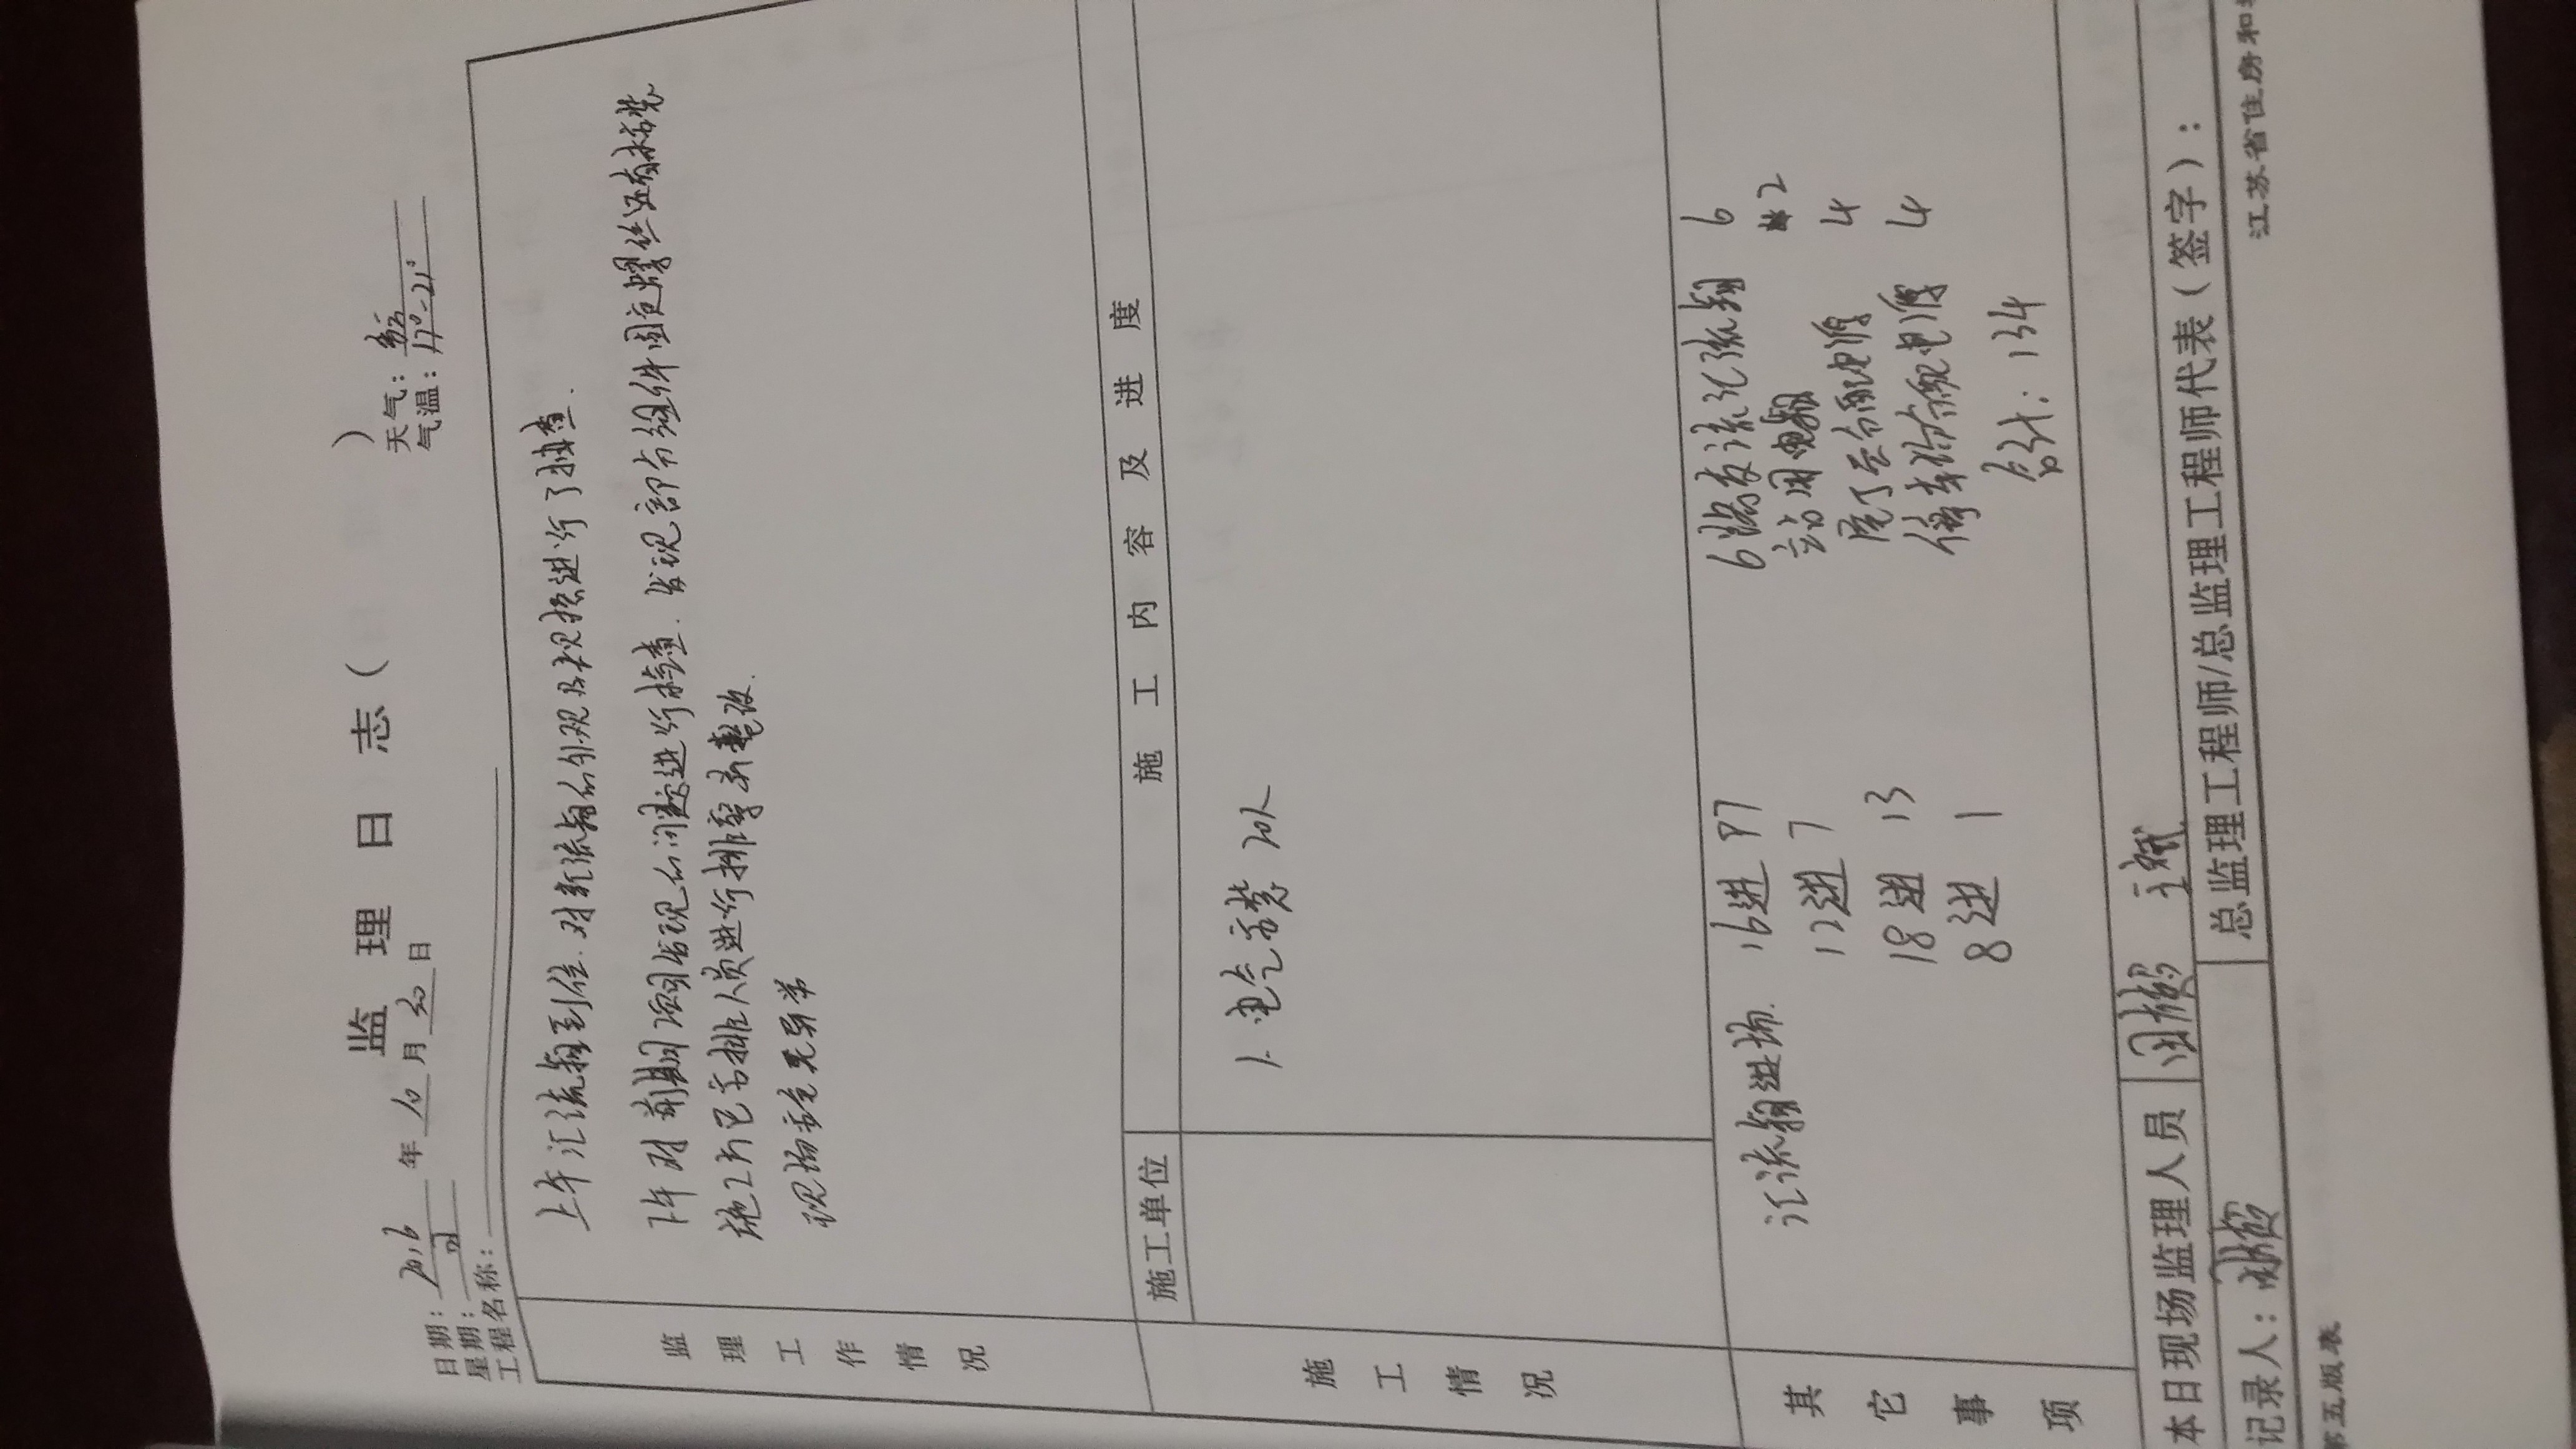 监 理 日 志 ( )
日期: 2016 年 10 月 30 日 天气:
星期: 日 气温: 17°-21°
工程名称:
监理工作情况
上午汇流箱到位. 对汇流箱的外观及规格进行了抽查.
下午对前期间发现的问题进行检查. 发现部分组件固定螺丝还有未安装
施工方已安排人员进行排查并整改.
现场安全无异常
施工情况
施工单位 施 工 内 容 及 进 度
1. 电气安装 20人
其它事项
汇流箱进场. 16进 97 6路交流汇流箱 6
12进 7 站用 2
18进 13 4
8进 1 4
总计: 134
本日现场监理人员
记录人: 总监理工程师/总监理工程师代表(签字):
第五版表 江苏省住房和